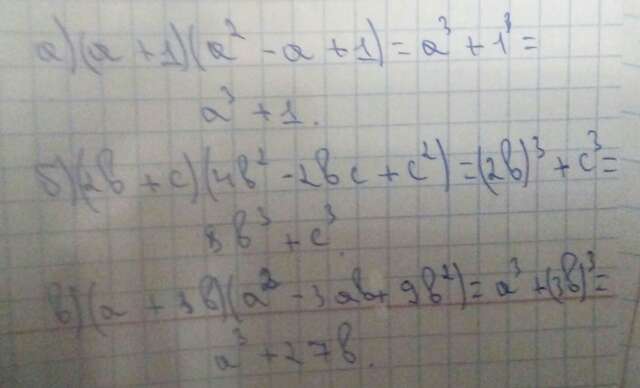 а) (a + 1)(a² - a + 1) = a³ + 1³ =
a³ + 1.
б) (2b + c)(4b² - 2bc + c²) = (2b)³ + c³ =
8b³ + c³.
в) (a + 3b)(a² - 3ab + 9b²) = a³ + (3b)³ =
a³ + 27b.